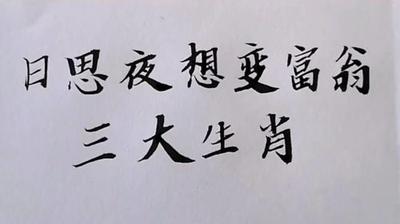 日思夜想变富翁
三大生肖